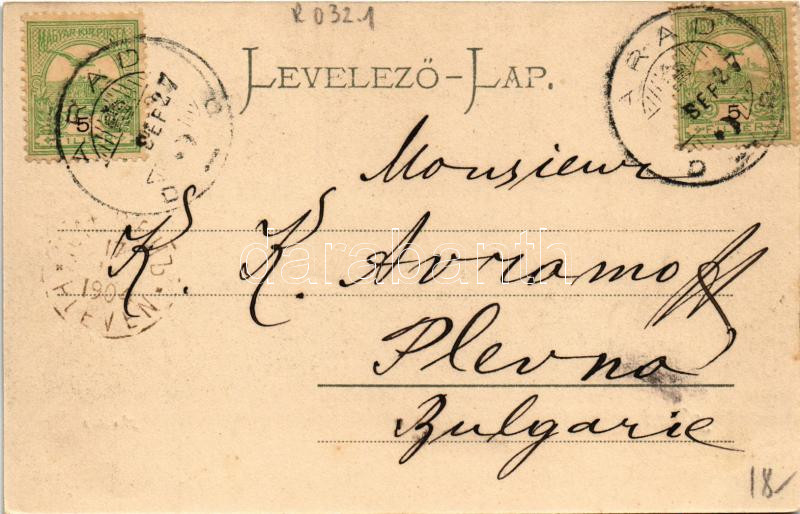 R 032.1
MAGYAR KIR. POSTA
5
ARAD
SEP 27
MAGYAR KIR. POSTA
5
FILLÉR
ARAD
SEP 27
LEVELEZŐ-LAP.
Monsieur
K. K. Avramoff
Plevna
Bulgarie
darabanth
18